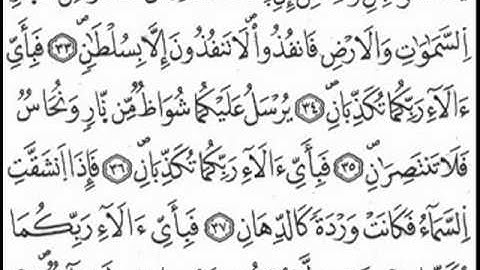 اِ۬لسَّمَٰوَٰتِ وَالَارْضِ فَانفُذُواْۖ لَا تَنفُذُونَ إِلَّا بِسُلْطَٰنٖۖ ٣٣ فَبِأَيِّ
ءَالَآءِ رَبِّكُمَا تُكَذِّبَٰنِۖ ٣٤ يُرْسَلُ عَلَيْكُمَا شُوَاظٞ مِّن نّ۪ارٖ وَنُحَاسٞ
فَلَا تَنتَصِرَٰنِۖ ٣٥ فَبِأَيِّ ءَالَآءِ رَبِّكُمَا تُكَذِّبَٰنِۖ ٣٦ فَإِذَا اَ۪نشَقَّتِ
اِ۬لسَّمَآءُ فَكَانَتْ وَرْدَةٗ كَالدِّهَانِۖ ٣٧ فَبِأَيِّ ءَالَآءِ رَبِّكُمَا